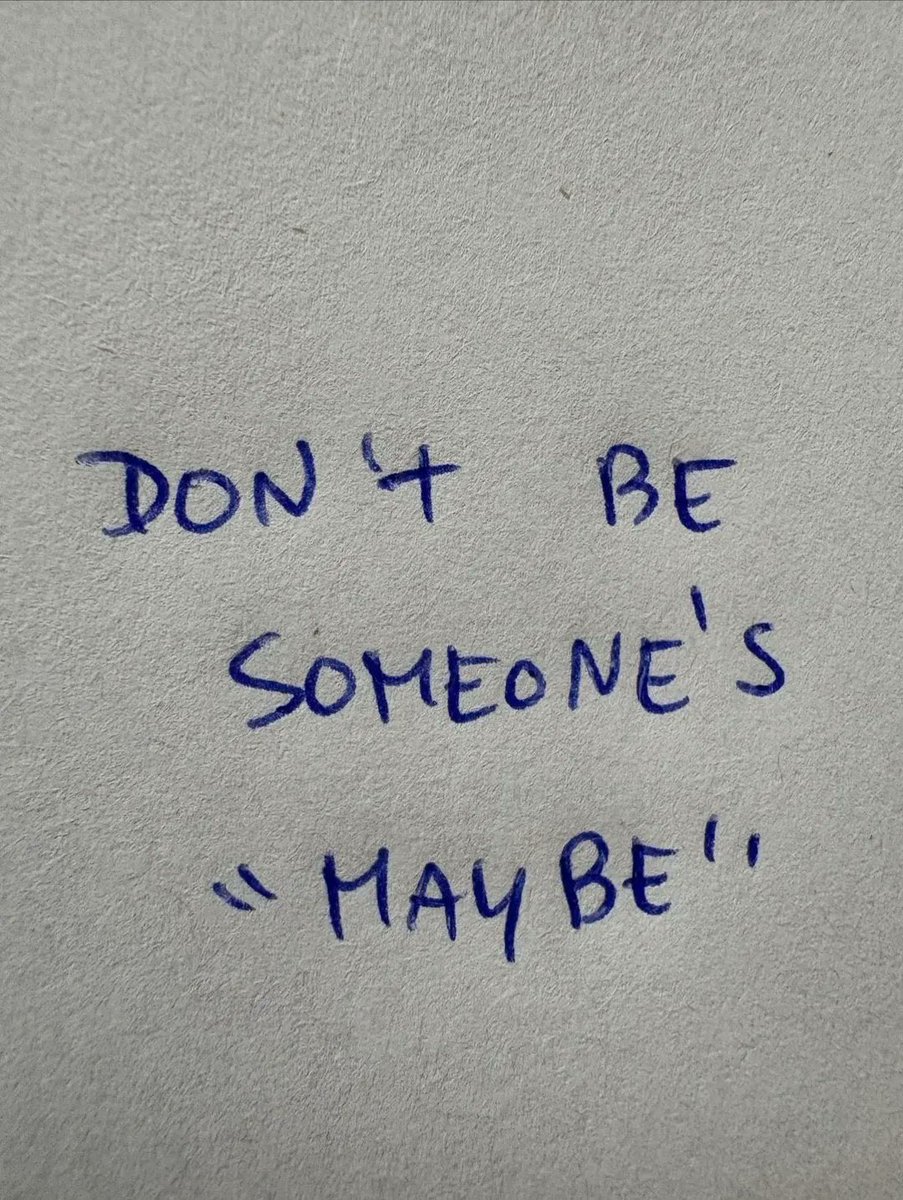 DON't BE
SOMEONE'S
"MAYBE"